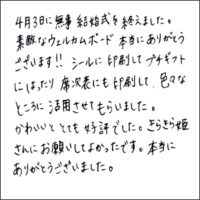 4月3日に無事 結婚式を終えました。
素敵なウェルカムボード 本当にありがとう
ございます!! シールに印刷してプチギフト
にはったり 席次表にも印刷して、色々な
ところに活用させてもらいました。
かわいいととても好評でした。きらきら姫
さんにお願いしてよかったです。本当に
ありがとうございました。